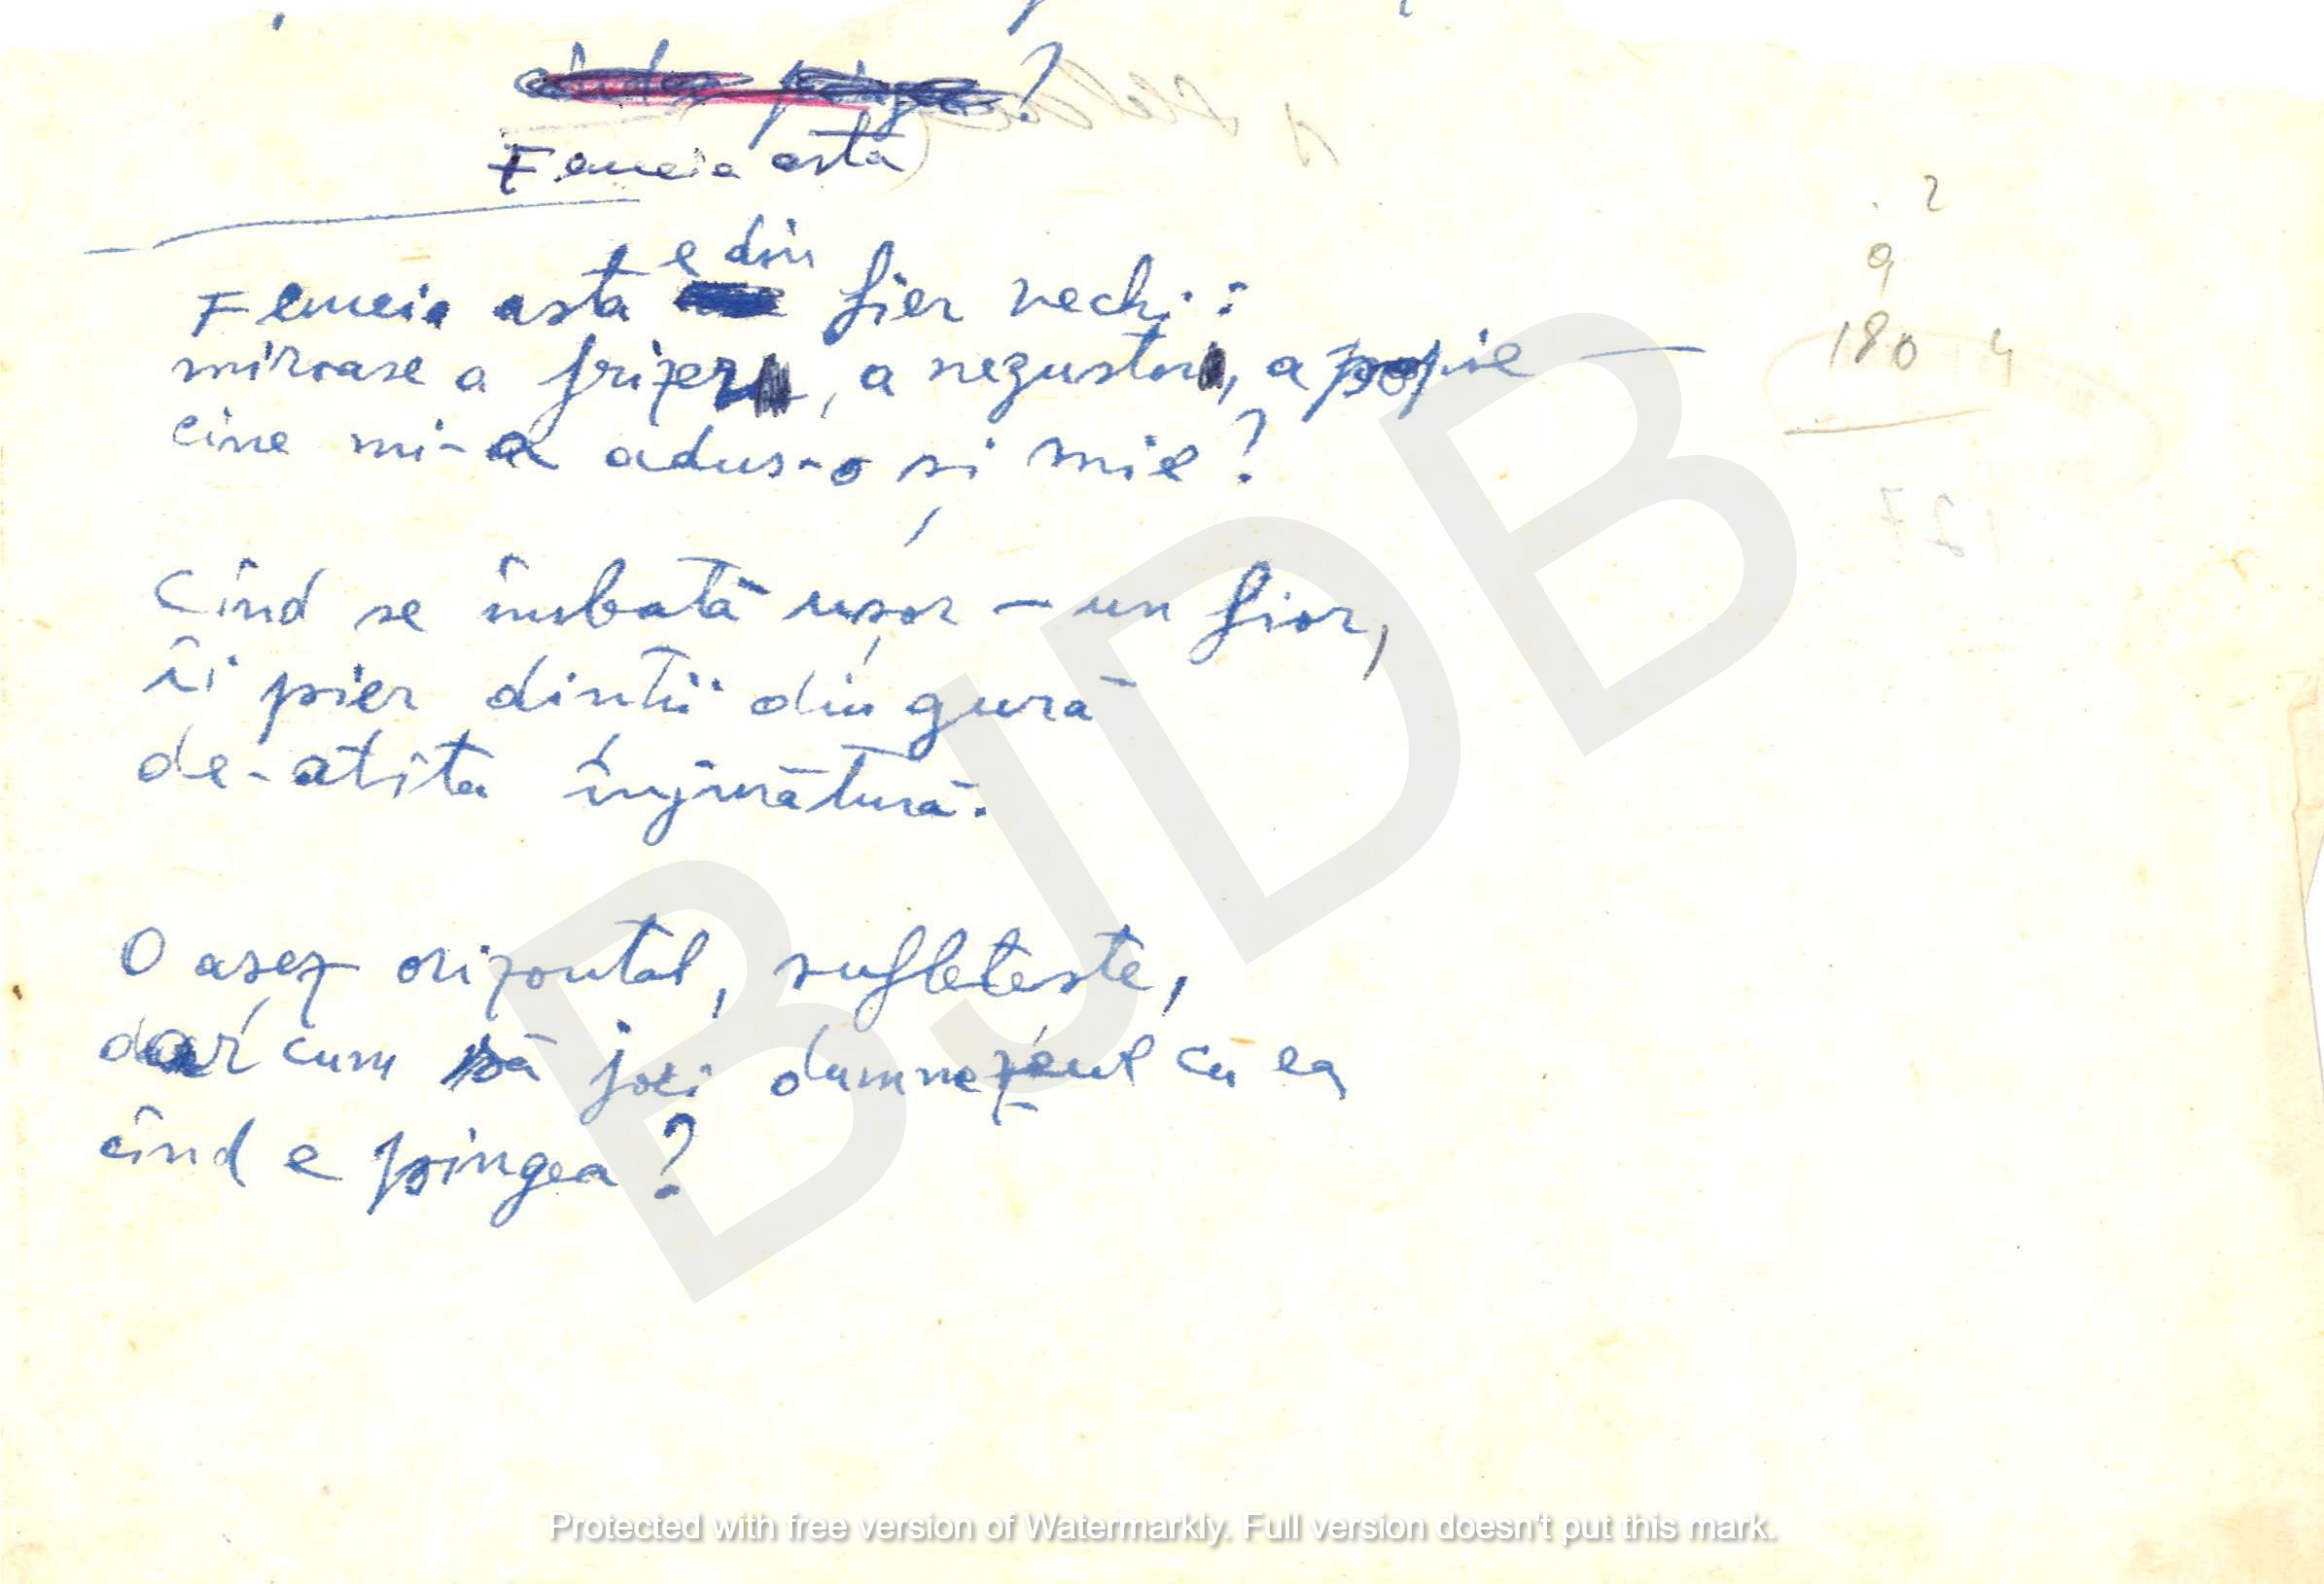 ?
Femeia asta
Femeia asta e din fier vechi:
miroase a frizer, a negustor, a popie —
cine mi-a adus-o și mie?
Cînd se îmbată ușor – un fior,
îi pier dinții din gură
de-atîta înjurătură.
O așez orizontal, sufletește,
dar cum să joci dumnezeul cu ea
cînd e pingea?
2
9
180
BJDB
Protected with free version of Watermarkly. Full version doesn't put this mark.